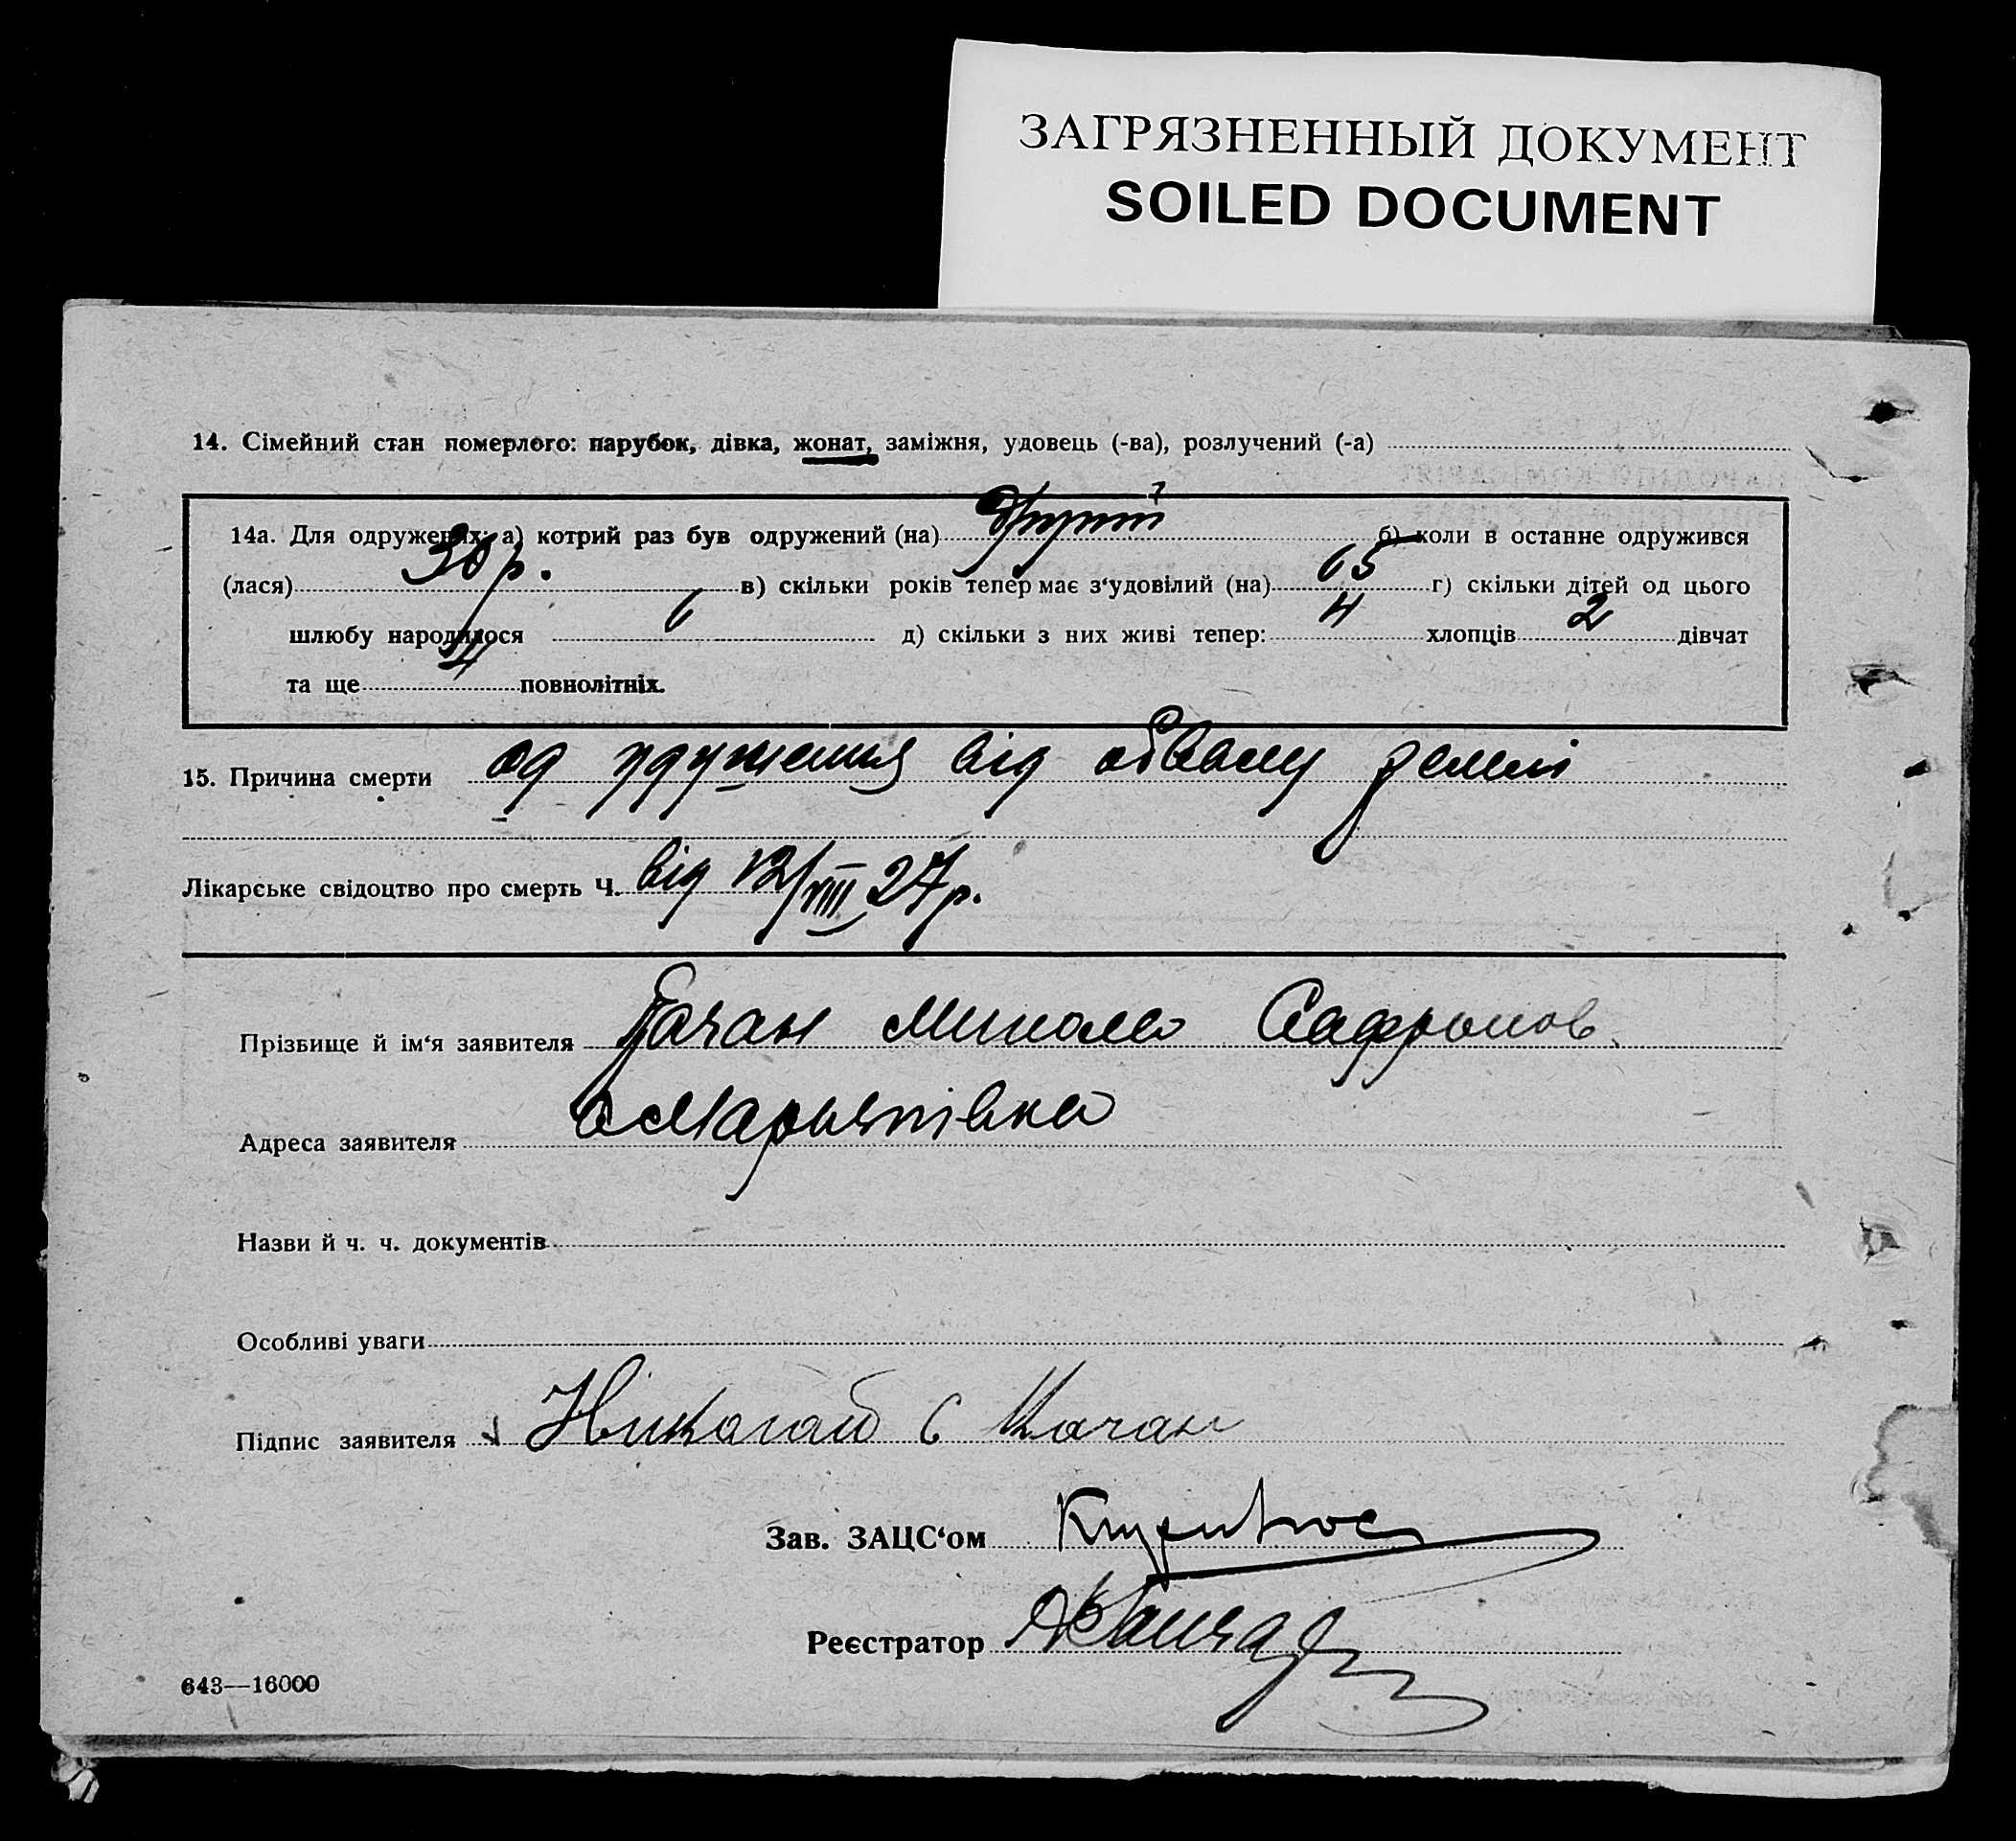 ЗАГРЯЗНЕННЫЙ ДОКУМЕНТ
SOILED DOCUMENT
14. Сімейний стан померлого: парубок, дівка, жонат, заміжня, удовець (-ва), розлучений (-а)
14а. Для одружених: а) котрий раз був одружений (на) другий б) коли в останне одружився
(лася) 30 р. в) скільки років тепер має з‘удовілий (на) 65 г) скільки дітей од цього
шлюбу народилося 6 д) скільки з них живі тепер: 4 хлопців 2 дівчат
та ще 4 повнолітніх.
15. Причина смерти од здушення від обвалу землі
Лікарське свідоцтво про смерть Ч. від 12/VIII 27 р.
Прізвище й ім‘я заявителя Качан Микола Сафронов
Адреса заявителя
Назви й ч. ч. документів
Особливі уваги
Підпис заявителя Николай С Качан
Зав. ЗАЦС‘ом
Реєстратор
643—16000